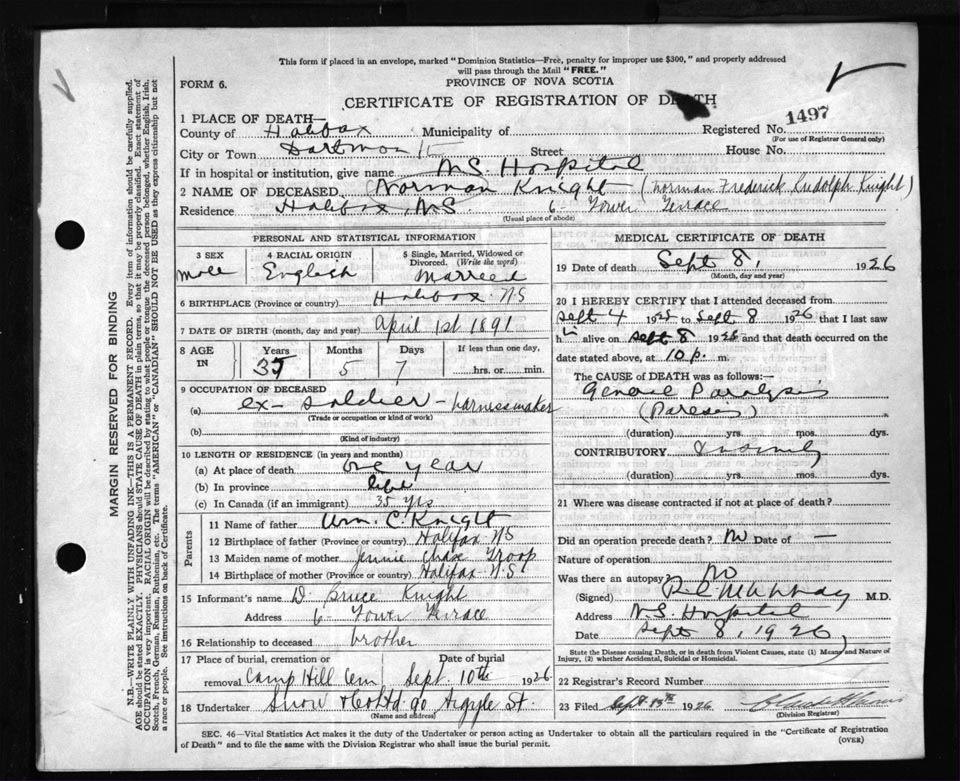 This form if placed in an envelope, marked "Dominion Statistics—Free, penalty for improper use $300," and properly addressed
will pass through the Mail "FREE."
FORM 6.
PROVINCE OF NOVA SCOTIA
CERTIFICATE OF REGISTRATION OF DEATH
1 PLACE OF DEATH—
County of Halifax Municipality of
Registered No. 1497
(For use of Registrar General only)
City or Town Dartmouth Street House No.
If in hospital or institution, give name NS Hospital
2 NAME OF DECEASED Norman Knight (Norman Frederick Rudolph Knight)
Residence Halifax, NS 6 Tower Terrace
(Usual place of abode)
PERSONAL AND STATISTICAL INFORMATION
3 SEX Male
4 RACIAL ORIGIN English
5 Single, Married, Widowed or Divorced. (Write the word) Married
6 BIRTHPLACE (Province or country) Halifax NS
7 DATE OF BIRTH (month, day and year) April 1st 1891
8 AGE IN
Years 35 Months 5 Days 7 If less than one day, hrs. or min.
9 OCCUPATION OF DECEASED
(a) ex-soldier - harnessmaker
(Trade or occupation or kind of work)
(b)
(Kind of industry)
10 LENGTH OF RESIDENCE (in years and months)
(a) At place of death one year
(b) In province life
(c) In Canada (if an immigrant) 35 yrs
Parents
11 Name of father Wm. C. Knight
12 Birthplace of father (Province or country) Halifax NS
13 Maiden name of mother Jennie Chase Troop
14 Birthplace of mother (Province or country) Halifax N.S.
15 Informant's name D. Bruce Knight
Address 6 Tower Terrace
16 Relationship to deceased brother
17 Place of burial, cremation or removal Camp Hill Cem
Date of burial Sept. 10th 1926
18 Undertaker Snow & Co Ltd. 90 Argyle St.
(Name and address)
MEDICAL CERTIFICATE OF DEATH
19 Date of death Sept 8, 1926
(Month, day and year)
20 I HEREBY CERTIFY that I attended deceased from
Sept 4 1925 to Sept 8 1926 that I last saw
him alive on Sept 8 1926 and that death occurred on the
date stated above, at 10 p. m.
The CAUSE OF DEATH was as follows:—
General Paralysis
(Paresis)
(duration) yrs. mos. dys.
CONTRIBUTORY
(duration) yrs. mos. dys.
21 Where was disease contracted if not at place of death?
Did an operation precede death? No Date of —
Nature of operation
Was there an autopsy? No
(Signed) M.D.
Address N.S. Hospital
Date Sept 8, 1926
State the Disease causing Death, or in death from Violent Causes, state (1) Means and Nature of
Injury, (2) whether Accidental, Suicidal or Homicidal.
22 Registrar's Record Number
23 Filed Sept. 13th 1926
(Division Registrar)
SEC. 46—Vital Statistics Act makes it the duty of the Undertaker or person acting as Undertaker to obtain all the particulars required in the "Certificate of Registration
of Death" and to file the same with the Division Registrar who shall issue the burial permit.
(OVER)
MARGIN RESERVED FOR BINDING
N.B.—WRITE PLAINLY WITH UNFADING INK—THIS IS A PERMANENT RECORD. Every item of information should be carefully supplied.
AGE should be stated EXACTLY. PHYSICIANS should STATE CAUSE OF DEATH in plain terms, so that it may be properly classified. Exact statement of
OCCUPATION is very important. RACIAL ORIGIN will be described by stating to what people or tongue the deceased person belonged, whether English, Irish,
Scotch, French, German, Russian, Ruthenian, etc. The terms "AMERICAN" or "CANADIAN" SHOULD NOT BE USED as they express citizenship but not
a race or people. See instructions on back of Certificate.